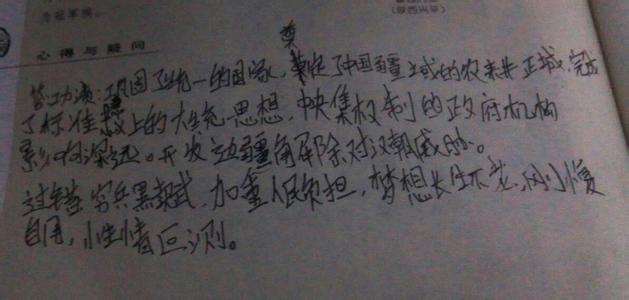 为冠军侯。
(陕西兴平)
心得与疑问
功绩：巩固了统一的国家，奠定了中国疆域的 正城，完成
了标准 上的大统思想，中央集权制的政府机构
影响深远。开发边疆解除对汉朝威胁。
过错 穷兵黩武，加重人民负担，梦想长生不老，刚愎
自用，性情叵测。